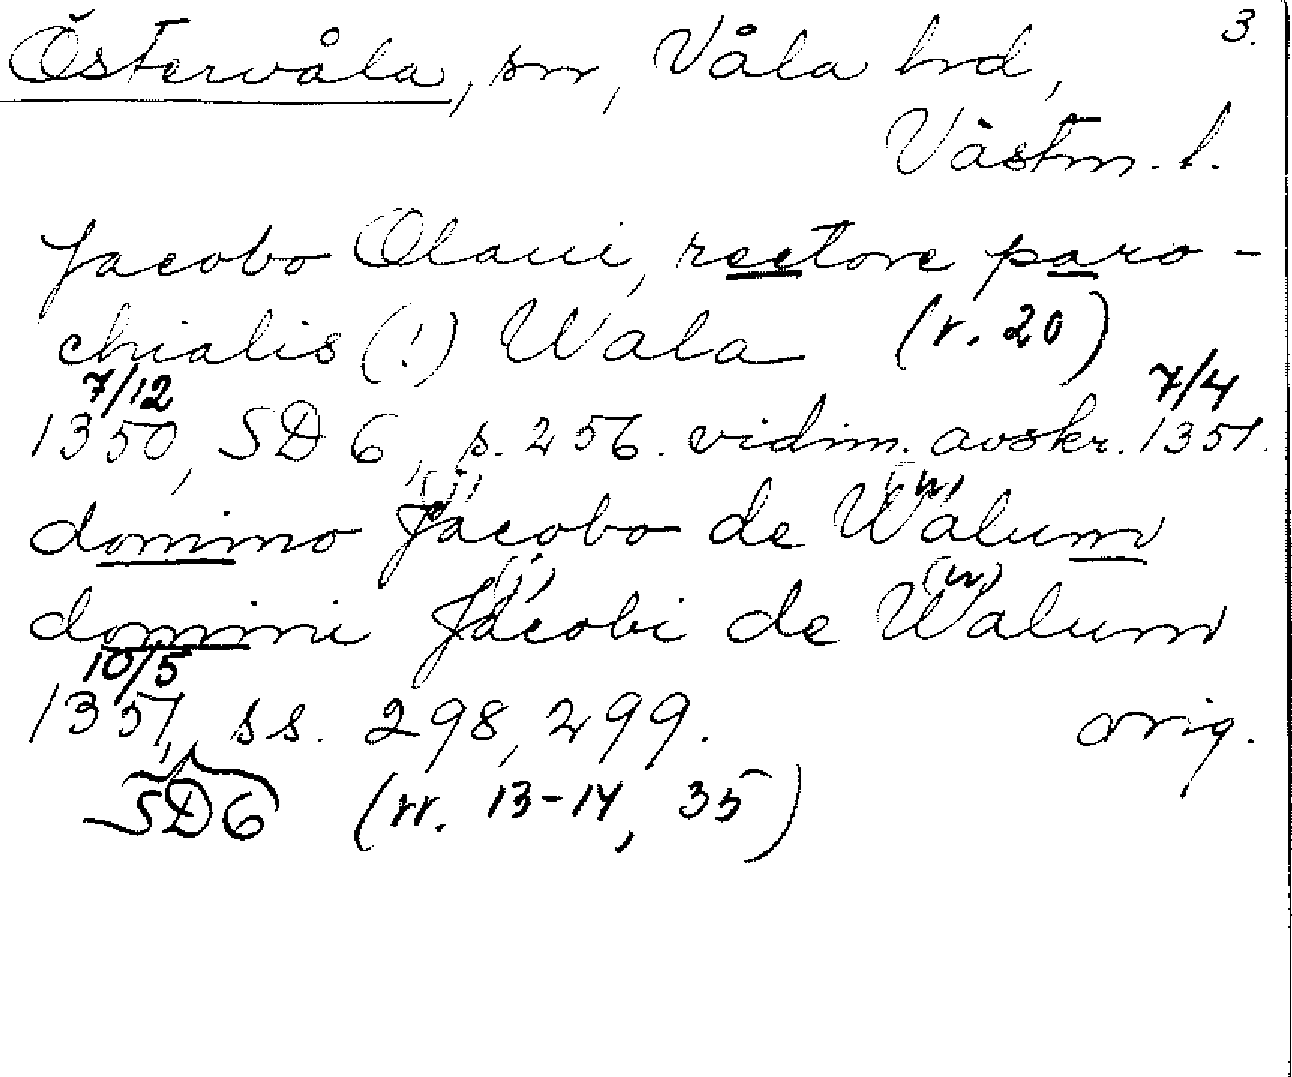 3.
Östervåla, sn, Våla hd,
Västm. l.
Jacobo Olaui, rectore paro-
chialis (!) Wala (r. 20)
7/12 7/4
1350, SD 6, s. 256. vidim. avskr. 1351.
(j) (w)
domino Jacobo de Walum
(j) (w)
domini Jacobi de Walum
10/5
1351, ss. 298, 299. orig.
SD6 (rr. 13-14, 35)